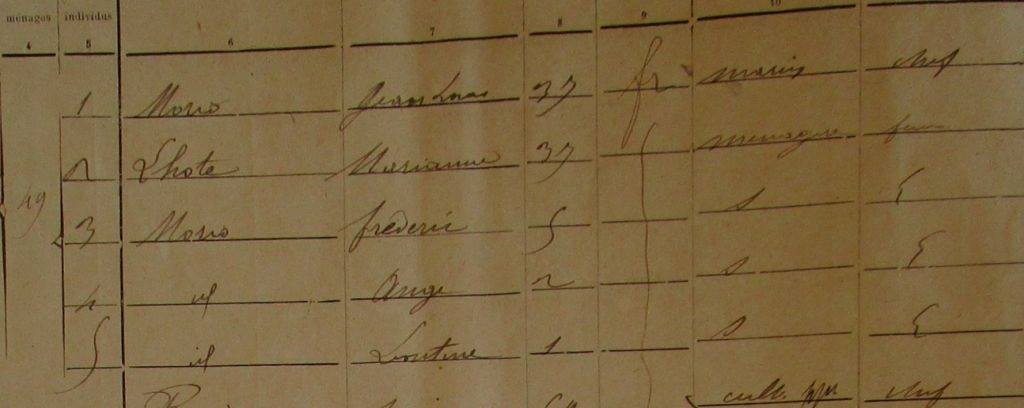 ménages individus
4 5 6 7 8 9 10
1 Morio Jean Louis 37 fr marin chef
2 Lhote Marianne 37 menagere fem
49 3 Morio frederic 5 s E
4 id Ange 2 s E
5 id Leontine 1 s E
cult. ppre chef